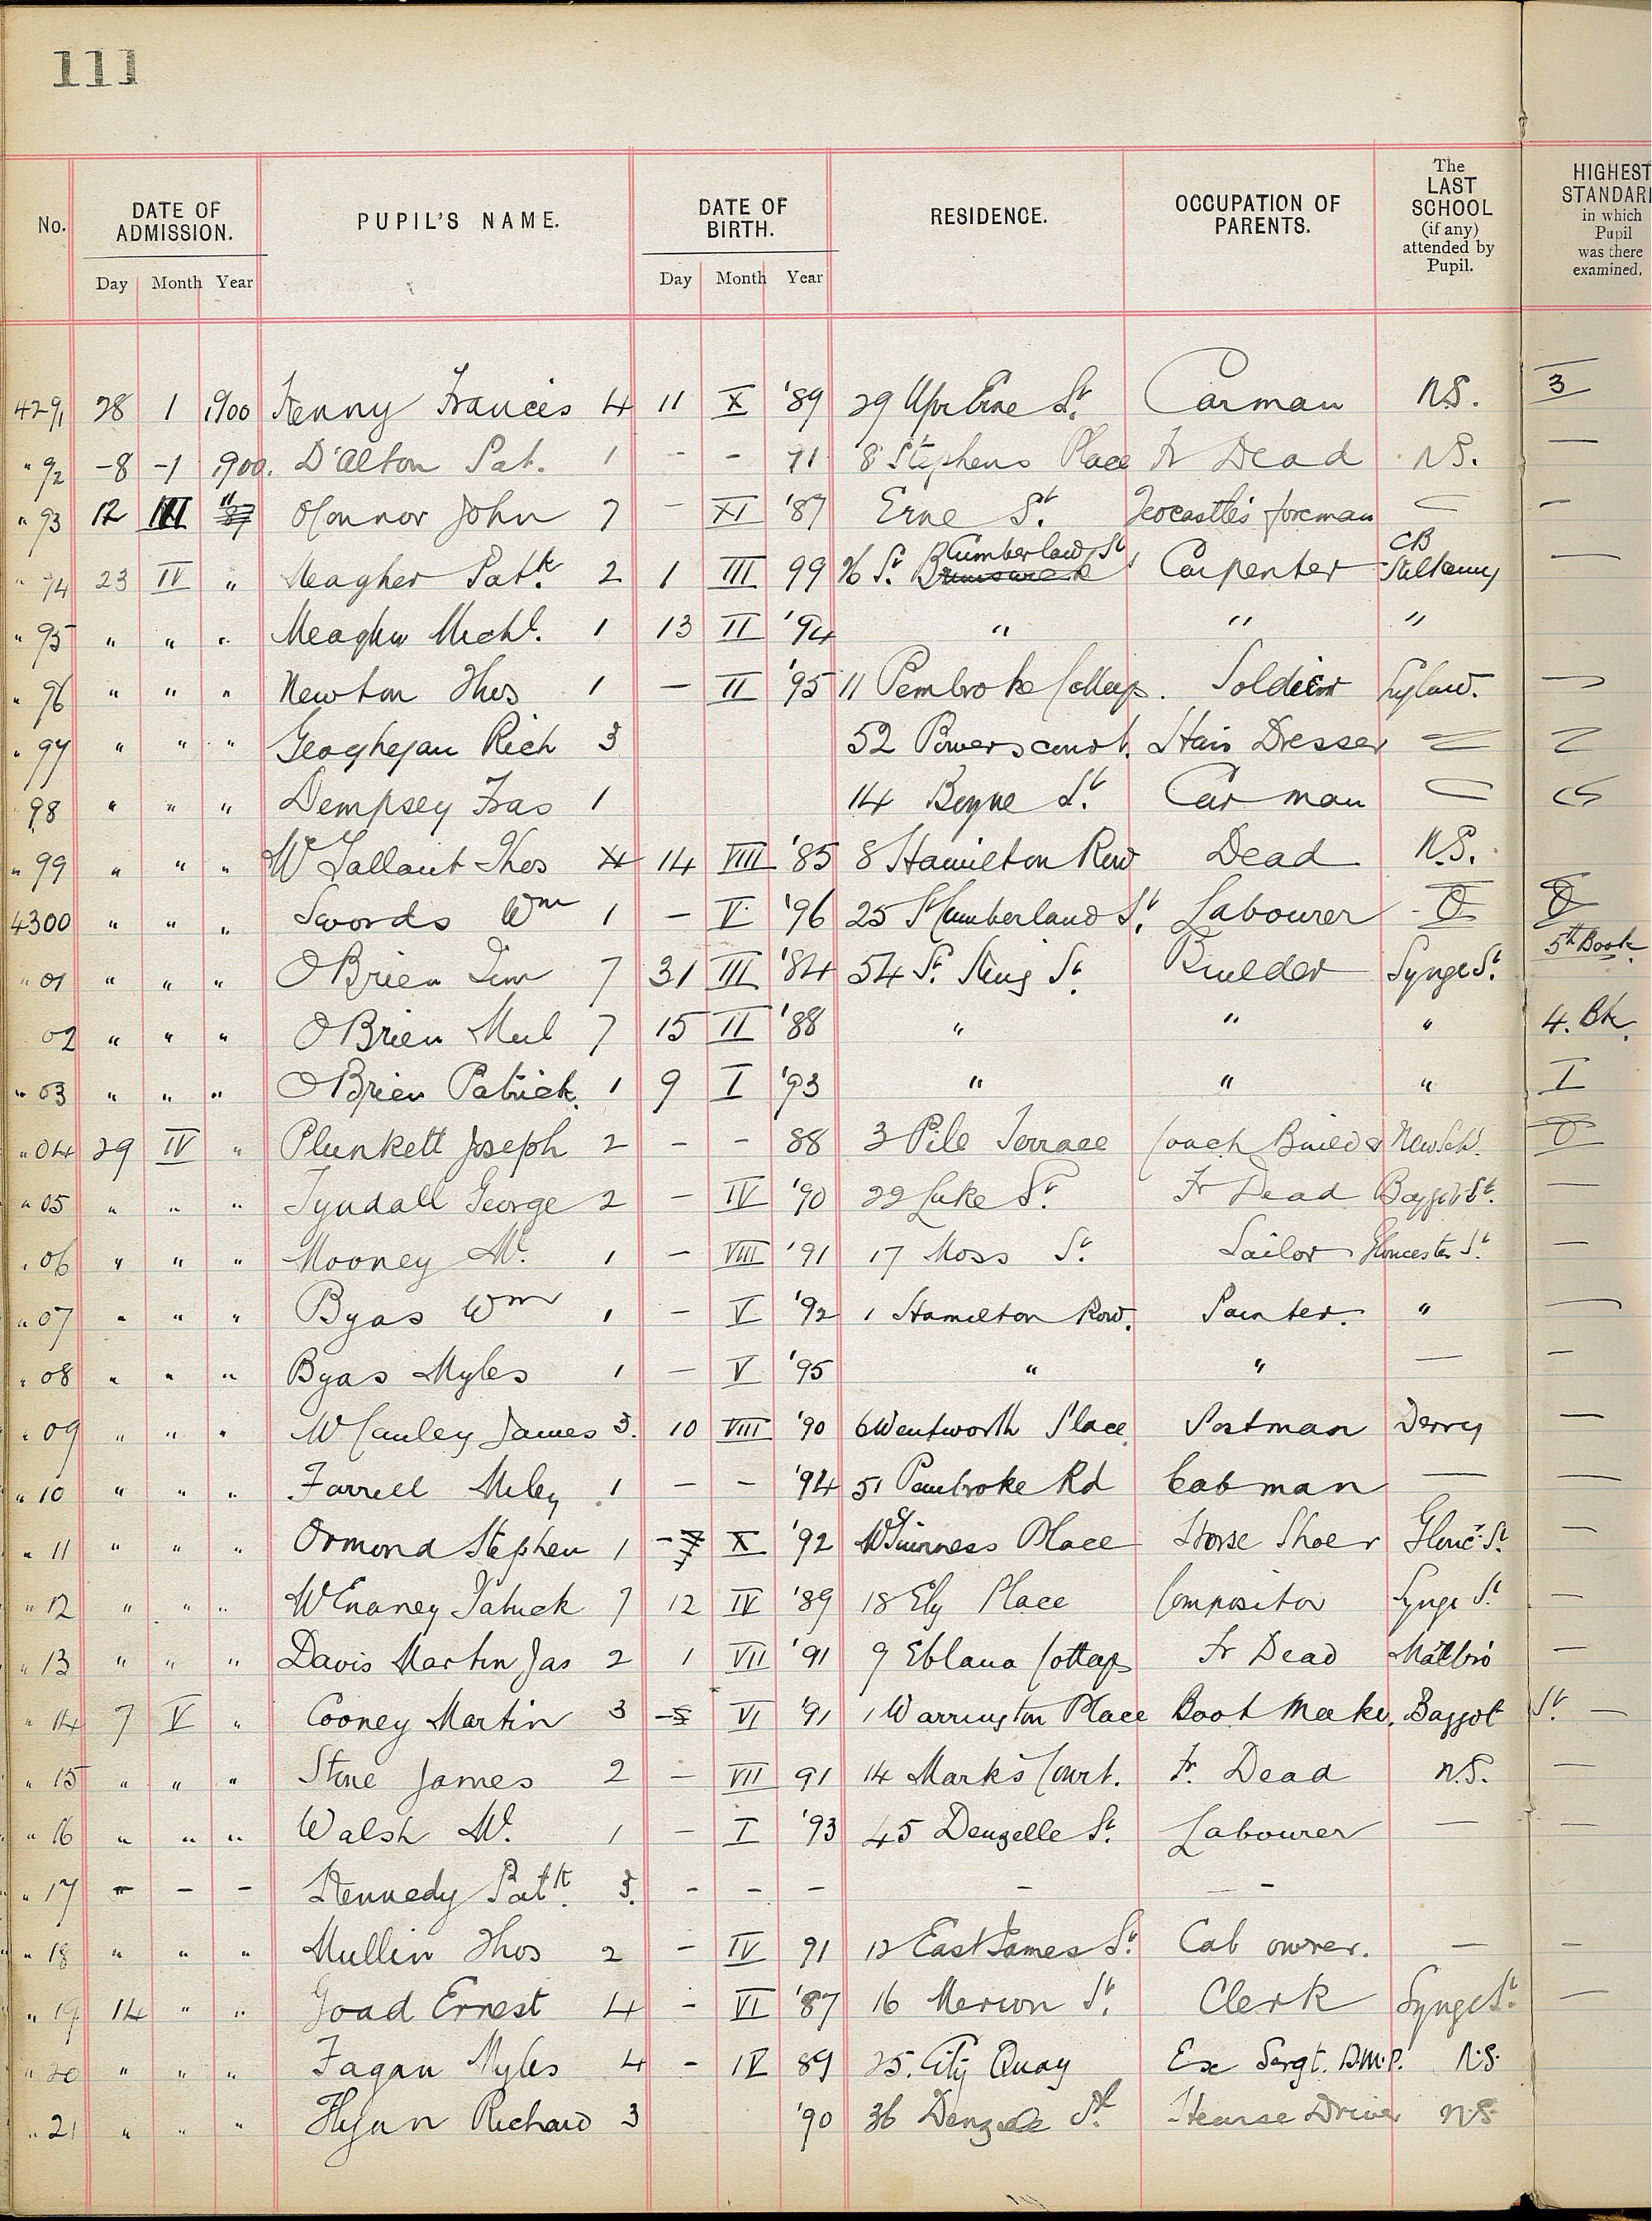 111
No. DATE OF ADMISSION. PUPIL'S NAME. DATE OF BIRTH. RESIDENCE. OCCUPATION OF PARENTS. The LAST SCHOOL (if any) attended by Pupil. HIGHEST STANDARD in which Pupil was there examined.
Day Month Year Day Month Year
4291 28 1 1900 Kenny Francis 4 11 X '89 29 Upr Erne St. Carman N.S. 3
" 92 -8 -1 1900. D'Alton Pat. 1 - - 91 8 Stephens Place Fr Dead N.S. —
" 93 12 III " O'Connor John 7 - XI '87 Erne St. foreman — —
" 94 23 IV " Meagher Patk. 2 1 III 99 26 St. Cumberland St Carpenter CB Kilkenny —
" 95 " " " Meagher Michl. 1 13 II '94 " " "
" 96 " " " Newton Thos 1 — II '95 11 Pembroke Cottags. Soldier England. —
" 97 " " " Geoghegan Rich 3 52 Powerscourt. Hair Dresser — —
98 " " " Dempsey Fras 1 14 Boyne St. Car man — —
" 99 " " " McGallant Thos 4 14 VIII '85 8 Hamilton Row Dead N.S.
4300 " " " Swords Wm 1 - V '96 25 S Cumberland St. Labourer - 0 0
" 01 " " " O'Brien Jim 7 31 III '84 54 St. King St. Builder Synge St. 5th Book
02 " " " O'Brien Ml 7 15 II '88 " " " 4. Bk.
" 03 " " " O'Brien Patrick. 1 9 I '93 " " " I
" 04 29 IV " Plunkett Joseph 2 - - 88 3 Pile Terrace Coach Builder New Sch. 0
" 05 " " " Tyndall George 2 - IV '90 22 Luke St. Fr Dead Baggot St. —
" 06 " " " Mooney Ml. 1 - VIII '91 17 Moss St. Sailor Gloucester St. —
" 07 " " " Byas Wm 1 - V '92 1 Hamilton Row. Painter. " —
" 08 " " " Byas Myles 1 - V '95 " " — —
" 09 " " " McCauley James 3. 10 VIII '90 6 Wentworth Place Postman Derry —
" 10 " " " Farrell Miley 1 - - '94 51 Pembroke Rd Cabman — —
" 11 " " " Ormond Stephen 1 - X '92 McGuinness Place Horse Shoer Glouc. St. —
" 12 " " " McEnaney Patrick 7 12 IV '89 18 Ely Place Compositor Synge St. —
" 13 " " " Davis Martin Jas 2 1 VII '91 9 Eblana Cottags Fr Dead Malbro' —
" 14 7 V " Cooney Martin 3 - VI '91 1 Warrington Place Boot Maker. Baggot St. —
" 15 " " " Stone James 2 - VII 91 14 Mark's Court. Fr. Dead N.S. —
" 16 " " " Walsh Ml. 1 - I '93 45 Denzelle St. Labourer — —
" 17 - - - Kennedy Patk. 3. - - - - -
" 18 " " " Mullin Thos 2 - IV 91 12 East James St. Cab owner. — —
" 19 14 " " Goad Ernest 4 - VI '87 16 Merion St. Clerk Synge St. —
" 20 " " " Fagan Myles 4 - IV 89 25. City Quay Ex Sergt. D.M.P. N.S.
" 21 " " " Flynn Richard 3 '90 36 Denzelle St. Hearse Driver N.S.